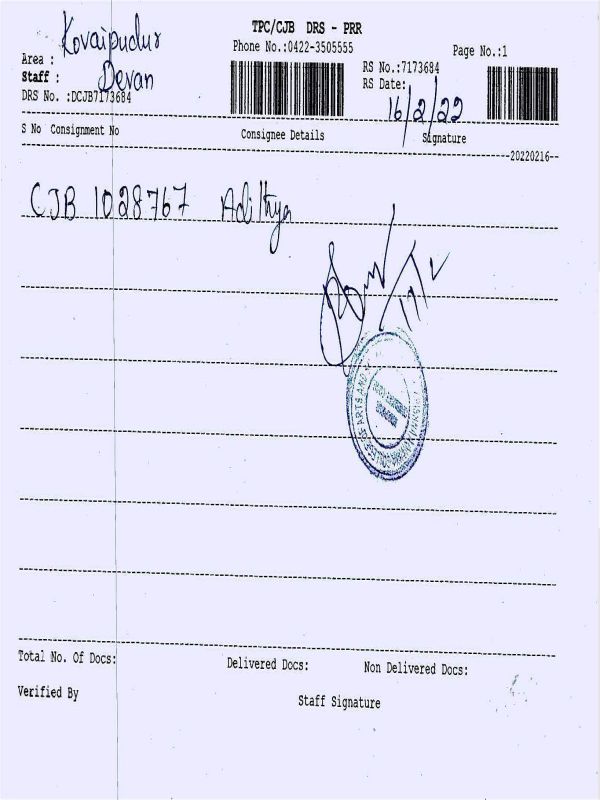 TPC/CJB DRS - PRR
Kovaipudur
Phone No.:0422-3505555
Page No.:1
Area :
RS No.:7173684
Staff : Devan
RS Date: 16/2/22
DRS No. :DCJB7173684
S No Consignment No Consignee Details Signature
20220216
CJB 1028767 Adithya
17/2
ARTS AND
Total No. Of Docs: Delivered Docs: Non Delivered Docs:
Verified By Staff Signature